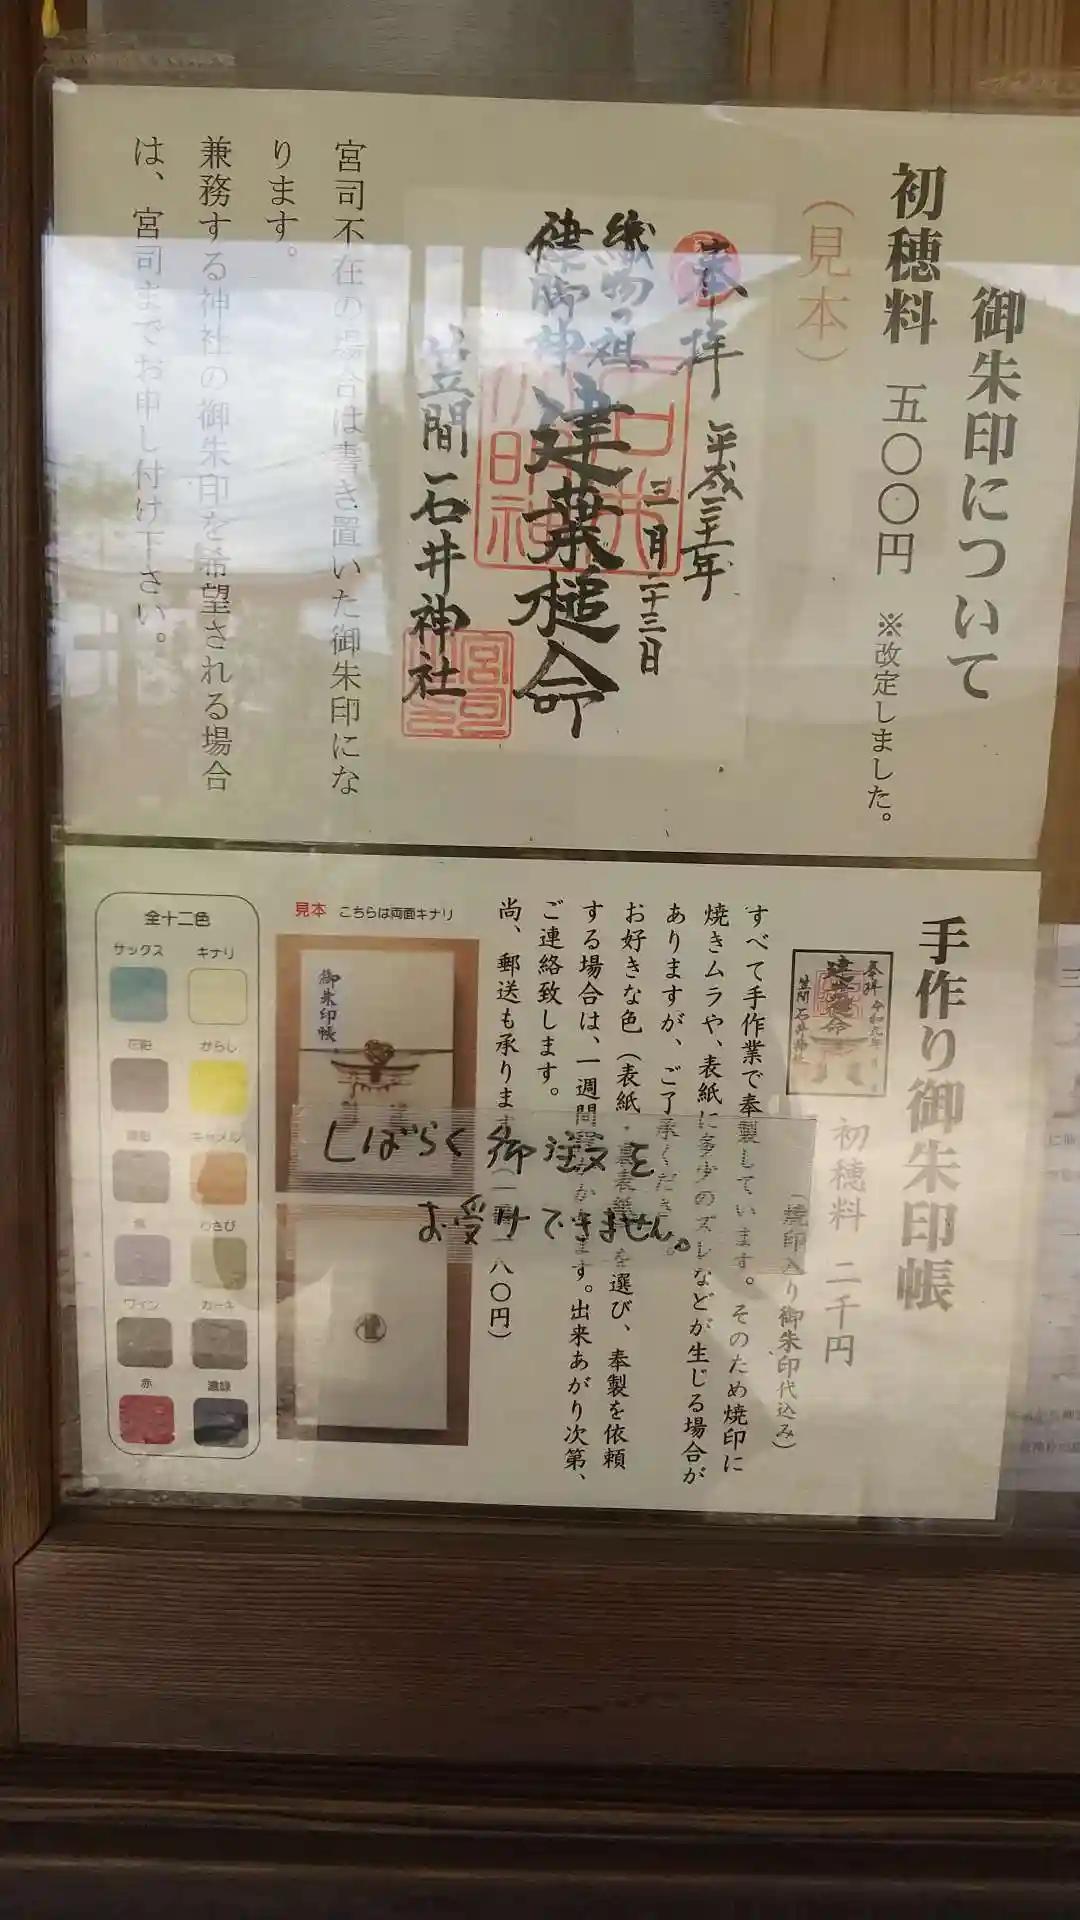 御朱印について
初穂料 五〇〇円 ※改定しました。
(見本)
奉拝 平成三十一年
三月二十三日
織物の祖
健御神
建葉槌命
笠間 石井神社
宮司不在の場合は書き置いた御朱印にな
ります。
兼務する神社の御朱印を希望される場合
は、宮司までお申し付け下さい。
手作り御朱印帳
初穂料 二千円
(焼印入り御朱印代込み)
すべて手作業で奉製しています。そのため焼印に
焼きムラや、表紙に多少のズレなどが生じる場合が
ありますが、ご了承ください。
お好きな色(表紙・裏表紙)を選び、奉製を依頼
する場合は、一週間 かかります。出来あがり次第、
ご連絡致します。
尚、郵送も承ります 一八〇円)
しばらく御注文を
お受けできません。
見本 こちらは両面キナリ
御朱印帳
全十二色
サックス キナリ
からし
キャメル
わさび
ワイン カーキ
赤 濃緑